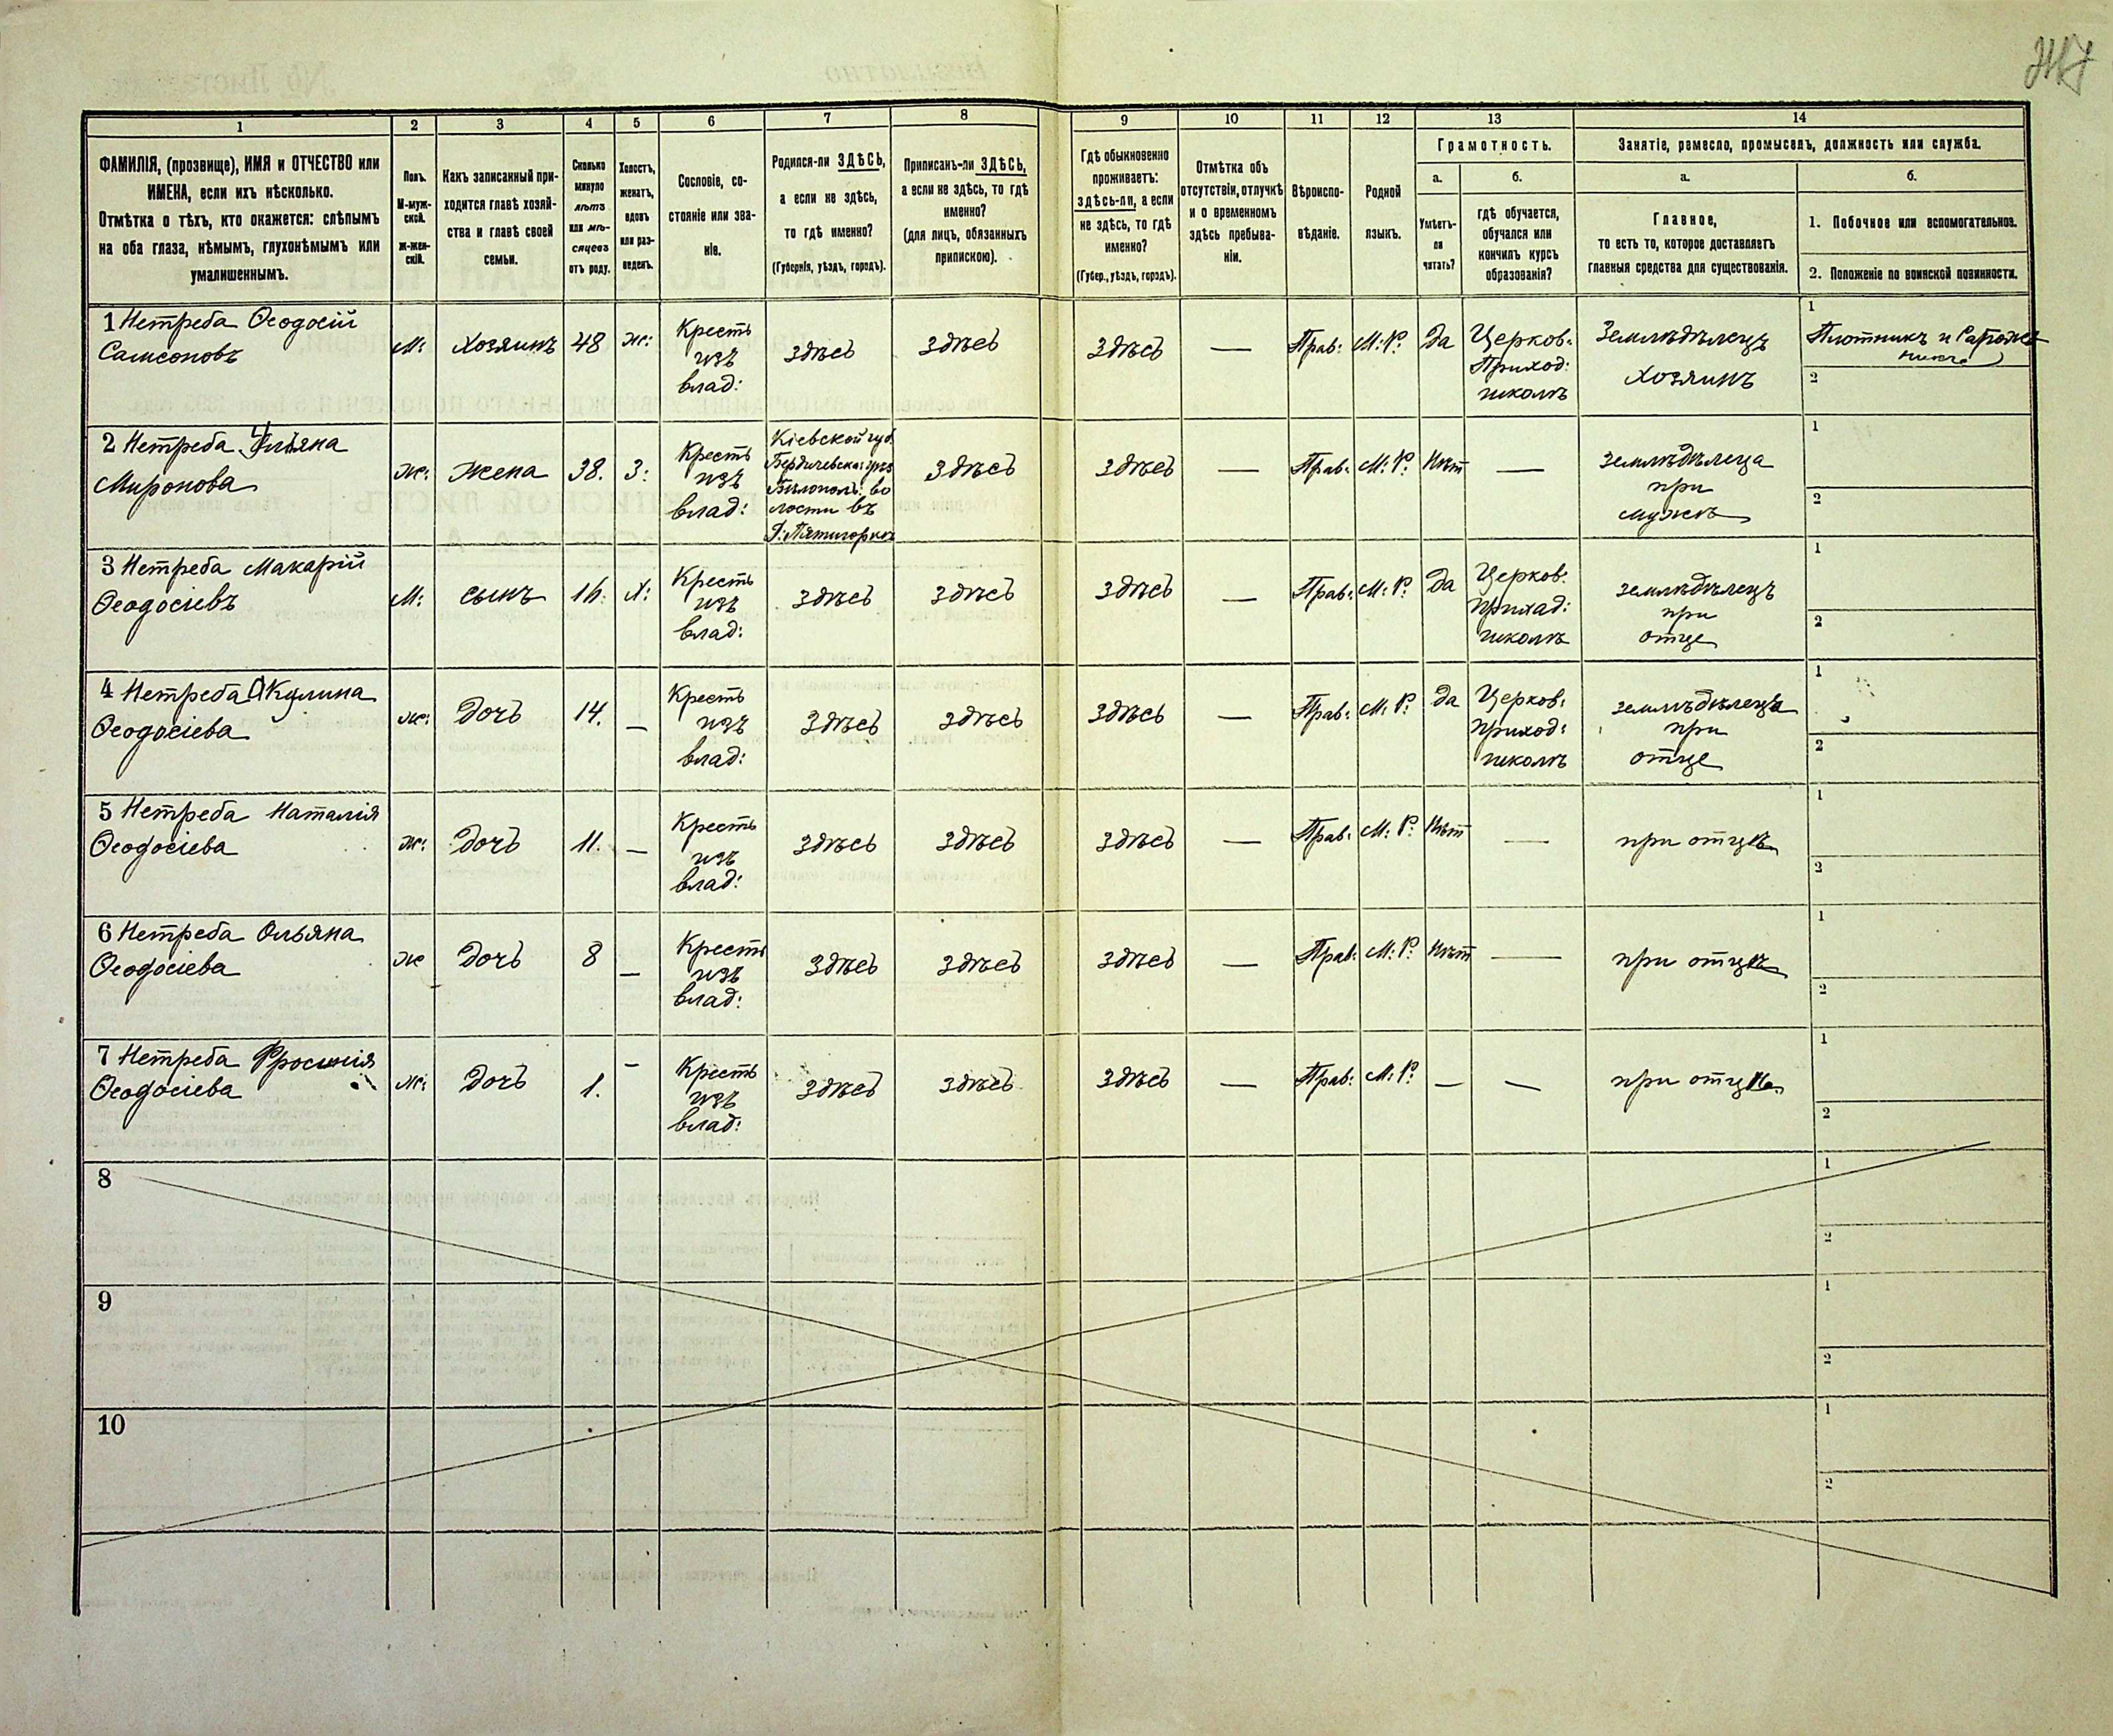 1
2
3
4
5
6
7
8
9
10
11
12
13
14
ФАМИЛІЯ, (прозвище), ИМЯ и ОТЧЕСТВО или
ИМЕНА, если ихъ нѣсколько.
Отмѣтка о тѣхъ, кто окажется: слѣпымъ
на оба глаза, нѣмымъ, глухонѣмымъ или
умалишеннымъ.
Полъ.
М-муж-
ской.
Ж-жен-
скій.
Какъ записанный при-
ходится главѣ хозяй-
ства и главѣ своей
семьи.
Сколько
минуло
лѣтъ
или мѣ-
сяцевъ
отъ роду.
Холостъ,
женатъ,
вдовъ
или раз-
веденъ.
Сословіе, со-
стояніе или зва-
ніе.
Родился-ли ЗДѢСЬ,
а если не здѣсь,
то гдѣ именно?
(Губернія, уѣздъ, городъ).
Приписанъ-ли ЗДѢСЬ,
а если не здѣсь, то гдѣ
именно?
(для лицъ, обязанныхъ
припискою).
Гдѣ обыкновенно
проживаетъ:
здѣсь-ли, а если
не здѣсь, то гдѣ
именно?
(Губер., уѣздъ, городъ).
Отмѣтка объ
отсутствіи, отлучкѣ
и о временномъ
здѣсь пребыва-
ніи.
Вѣроиспо-
вѣданіе.
Родной
языкъ.
Грамотность.
а.
Умѣетъ-
ли
читать?
б.
гдѣ обучается,
обучался или
кончилъ курсъ
образованія?
Занятіе, ремесло, промыселъ, должность или служба.
а.
Главное,
то есть то, которое доставляетъ
главныя средства для существованія.
б.
1. Побочное или вспомогательное.
2. Положеніе по воинской повинности.
1 Нетреба Ѳеодосій
Самсоновъ
М:
Хозяинъ
48
ж:
Кресть
изъ
влад:
здѣсь
здѣсь
здѣсь
—
Прав:
М: Р:
да
Церков:
Приход:
школѣ
Землѣдѣлецъ
хозяинъ
1
Плотникъ и Сапож
никъ
2
2 Нетреба Ульяна
Миронова
ж:
жена
38.
З:
Кресть
изъ
влад:
Кіевской губ
Бердичевска: уѣз
Бѣлополь: во
лости въ
Д: Пятигоркѣ
здѣсь
здѣсь
—
Прав:
М: Р:
Нѣт
—
землѣдѣлеца
при
мужѣ
1
2
3 Нетреба Макарій
Ѳеодосіевъ
М:
сынъ
16.
Х:
Кресть
изъ
влад:
здѣсь
здѣсь
здѣсь
—
Прав:
М: Р:
да
Церков:
Прихад:
школѣ
землѣдѣлецъ
при
отце
1
2
4 Нетреба Акулина
Ѳеодосіева
ж:
Дочь
14.
—
Кресть
изъ
влад:
здѣсь
здѣсь
здѣсь
—
Прав:
М: Р:
да
Церков:
Приход:
школѣ
землѣдѣлеца
при
отце
1
2
5 Нетреба Наталія
Ѳеодосіева
ж:
Дочь
11.
—
Кресть
изъ
влад:
здѣсь
здѣсь
здѣсь
—
Прав:
М: Р:
Нѣт
—
при отцѣ
1
2
6 Нетреба Ольяна
Ѳеодосіева
ж
Дочь
8
—
Кресть
изъ
влад:
здѣсь
здѣсь
здѣсь
—
Прав:
М: Р:
нѣт
—
при отцѣ
1
2
7 Нетреба Фросинія
Ѳеодосіева
ж:
Дочь
1.
—
Кресть
изъ
влад:
здѣсь
здѣсь
здѣсь
—
Прав:
М: Р:
—
—
при отцѣ
1
2
8
1
2
9
1
2
10
1
2